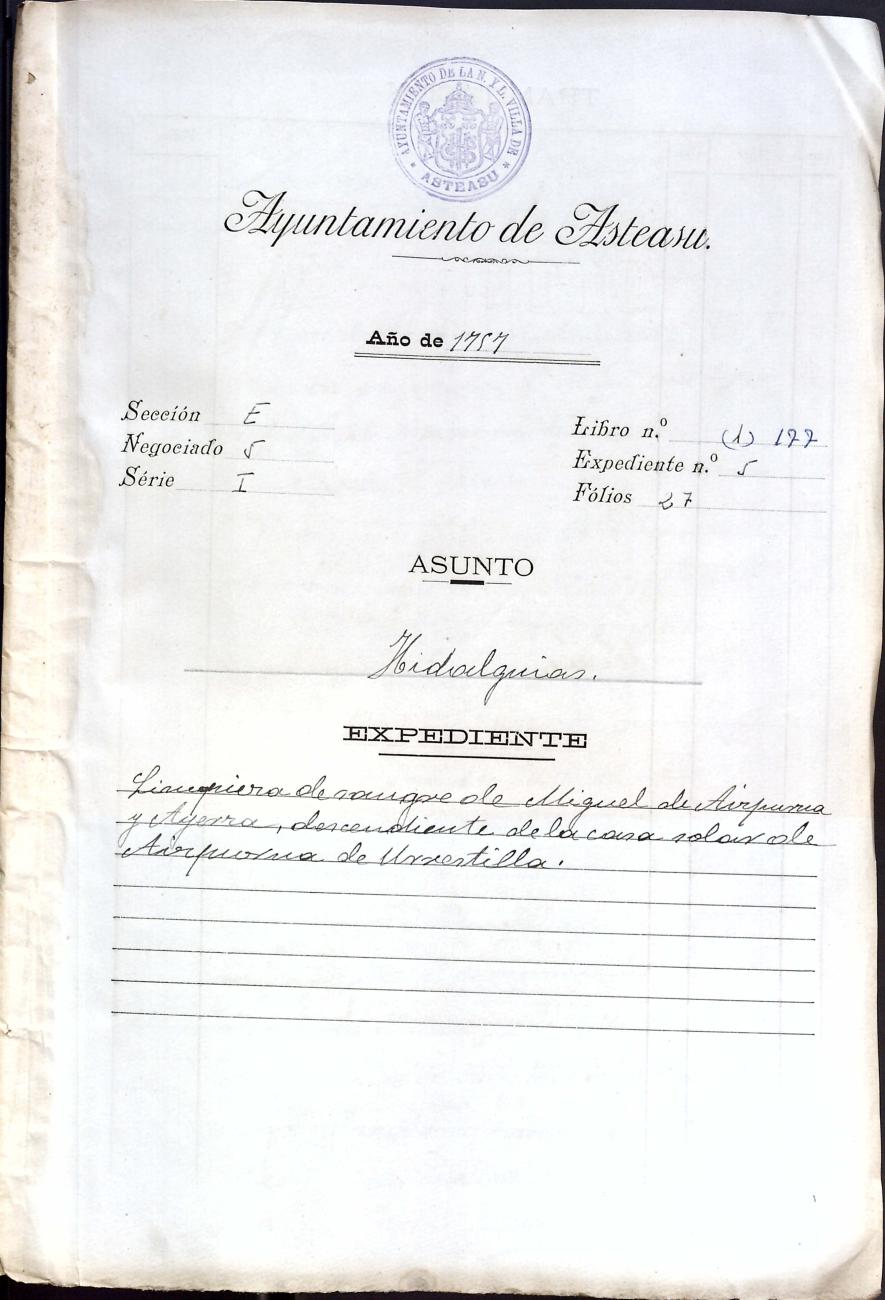 AYUNTAMIENTO DE LA N. Y L. VILLA DE
* ASTEASU *
Ayuntamiento de Asteasu.
Año de 1757
Sección E
Negociado 5
Série I
Libro n.º (1) 177
Expediente n.º 5
Fólios 27
ASUNTO
Hidalguias.
EXPEDIENTE
Limpiera de sangre de Miguel de Airpurua
y Ayerra, descendiente de la casa solar de
Airpurua de Urrestilla.